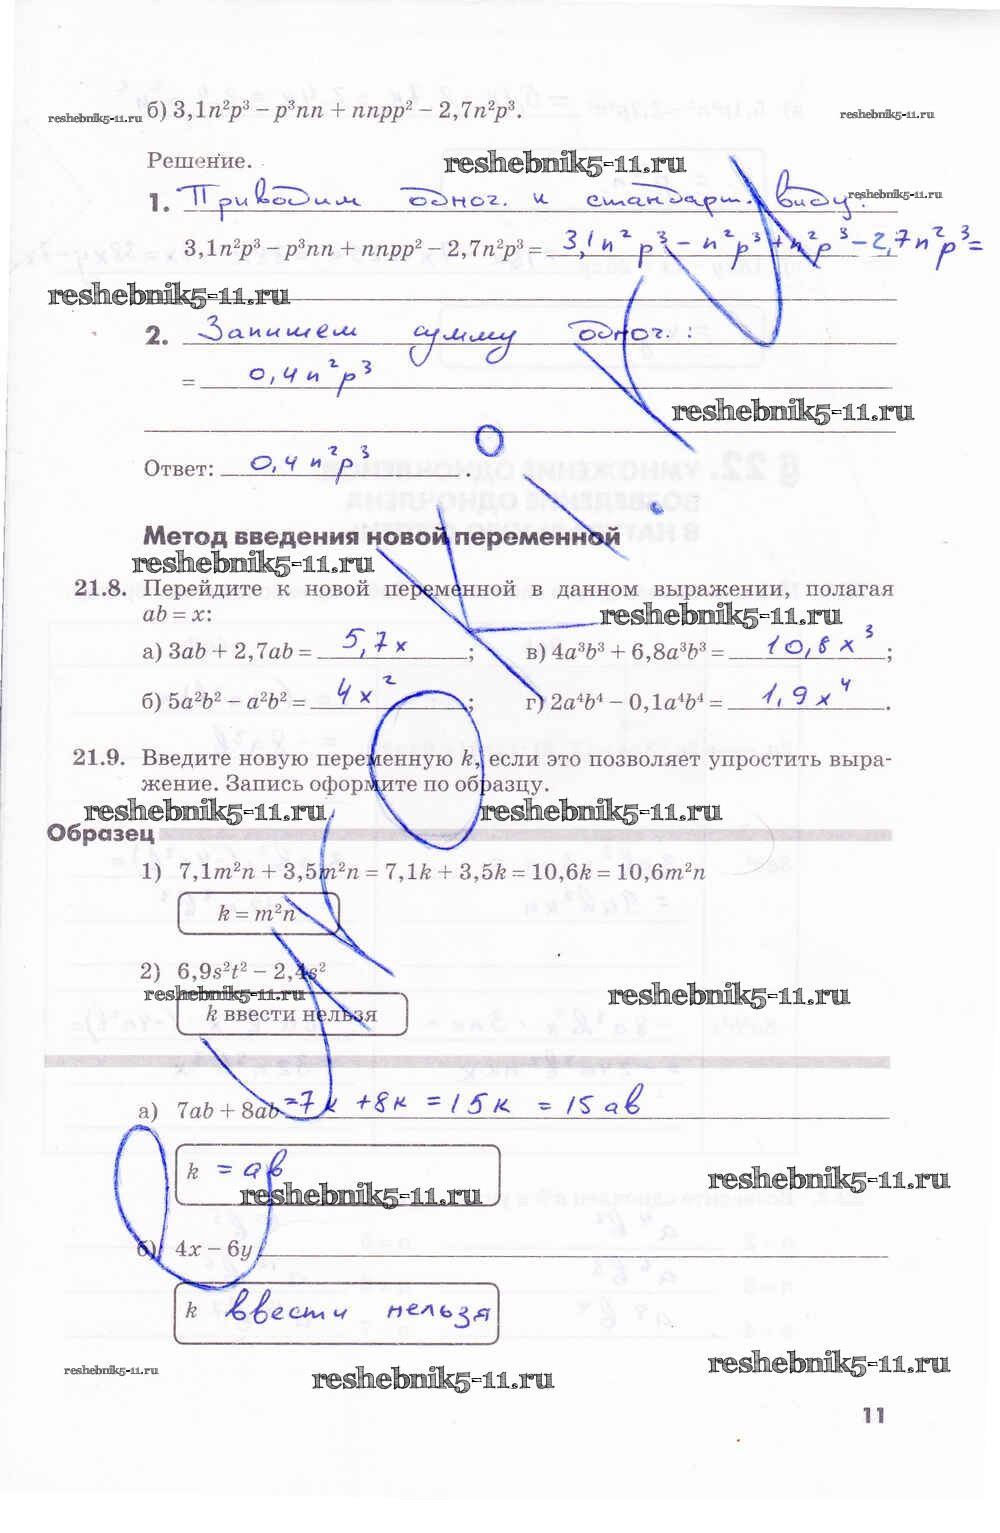 reshebnik5-11.ru б) 3,1n²p³ – p³nn + nnpp² – 2,7n²p³. reshebnik5-11.ru
Решение. reshebnik5-11.ru
1. Приводим одноч. к стандарт. виду: reshebnik5-11.ru
3,1n²p³ – p³nn + nnpp² – 2,7n²p³ = 3,1n²p³ – n²p³ + n²p³ – 2,7n²p³ =
reshebnik5-11.ru
2. Запишем сумму одноч.:
= 0,4n²p³
reshebnik5-11.ru
Ответ: 0,4n²p³.
Метод введения новой переменной
reshebnik5-11.ru
21.8. Перейдите к новой переменной в данном выражении, полагая
ab = x: reshebnik5-11.ru
а) 3ab + 2,7ab = 5,7x; в) 4a³b³ + 6,8a³b³ = 10,8x³;
б) 5a²b² – a²b² = 4x²; г) 2a⁴b⁴ – 0,1a⁴b⁴ = 1,9x⁴.
21.9. Введите новую переменную k, если это позволяет упростить выра-
жение. Запись оформите по образцу.
reshebnik5-11.ru reshebnik5-11.ru
Образец
1) 7,1m²n + 3,5m²n = 7,1k + 3,5k = 10,6k = 10,6m²n
k = m²n
2) 6,9s²t² – 2,4s²
reshebnik5-11.ru reshebnik5-11.ru
k ввести нельзя
а) 7ab + 8ab =7к +8к =15к = 15ав
k = ав
reshebnik5-11.ru reshebnik5-11.ru
б) 4x – 6y
k ввести нельзя
reshebnik5-11.ru reshebnik5-11.ru reshebnik5-11.ru
11